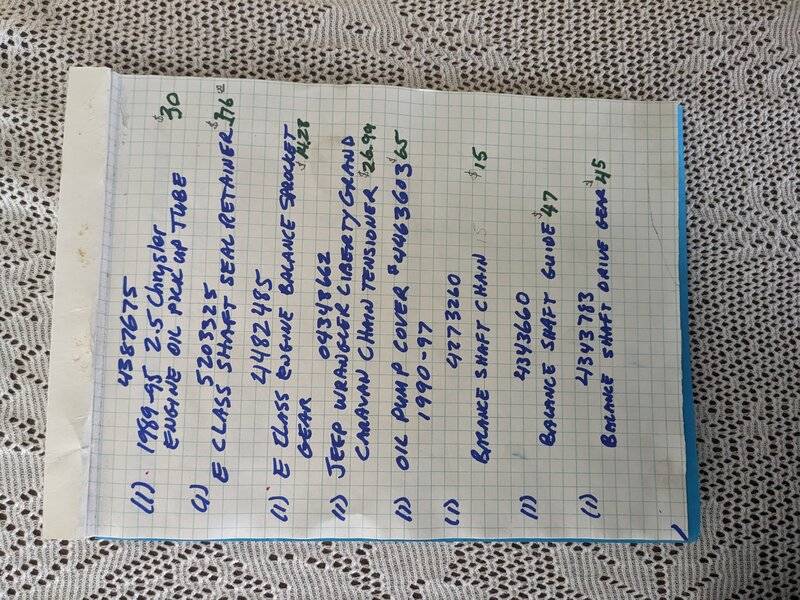 4387675
(1) 1989-95 2.5 Chrysler
ENGINE OIL PICK UP TUBE $30
5203325
(1) E CLASS SHAFT SEAL RETAINER $76
4482485
(1) E CLASS ENGINE BALANCE SPROCKET
GEAR $14.28
04343662
(1) JEEP WRANGLER LIBERTY GRAND
CARAVAN CHAIN TENSIONER $26.99
(1) OIL PUMP COVER # 4463603 $65
1990-97
4273260
(1) BALANCE SHAFT CHAIN 15 $15
4343660
(1) BALANCE SHAFT GUIDE $47
4343783
(1) BALANCE SHAFT DRIVE GEAR $45